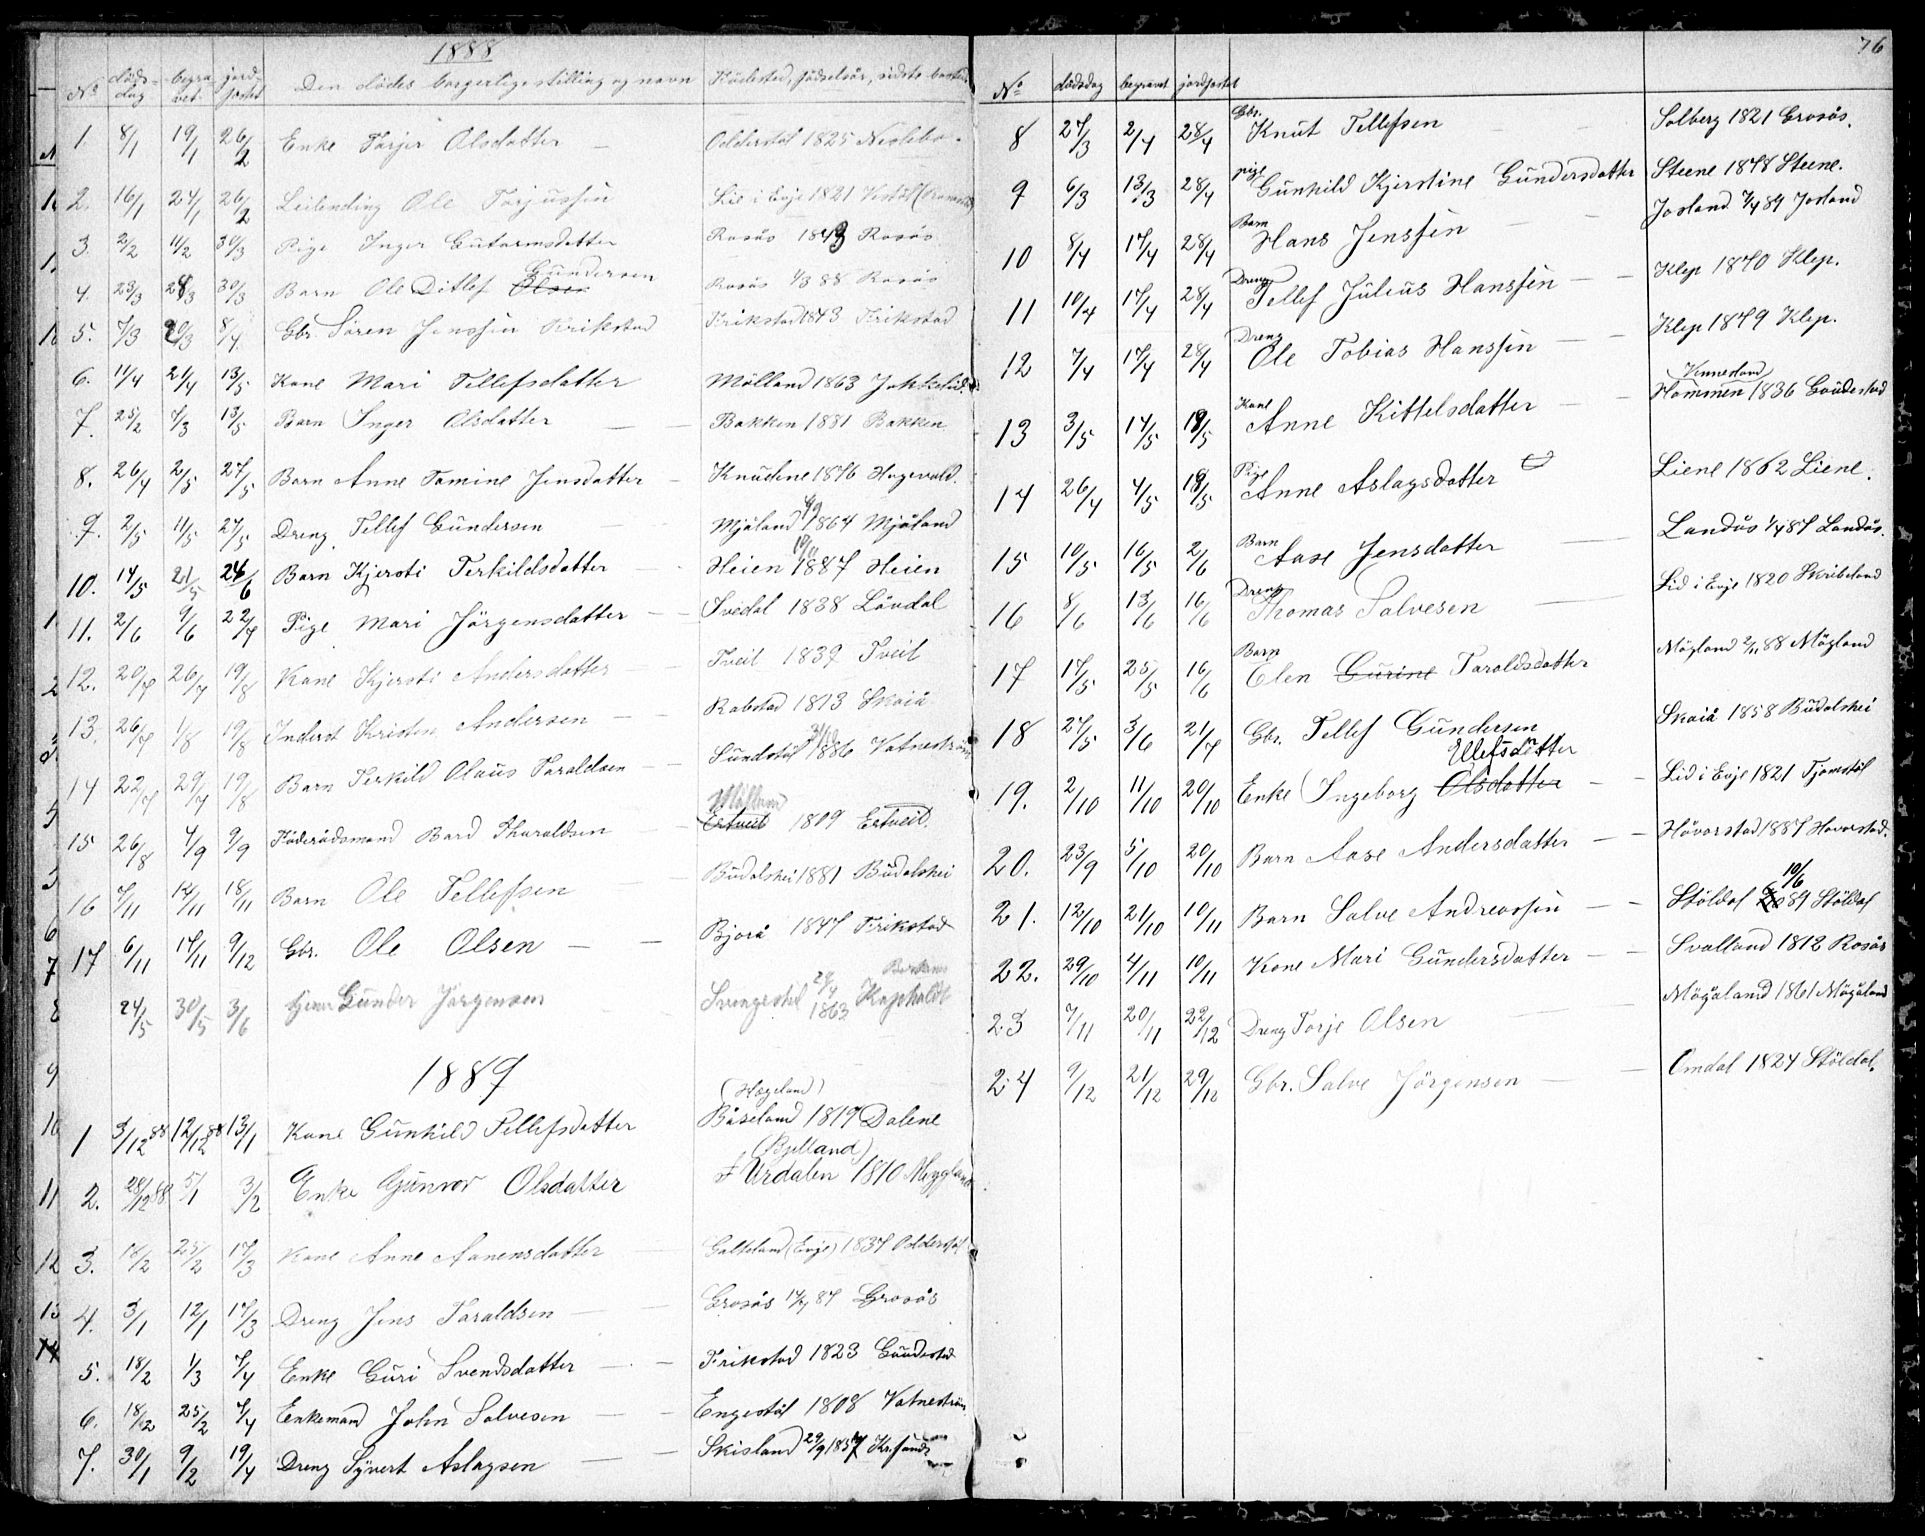 1888
No döds-dag begra-vet jord-fæstet Den dödes borgerlige stilling og navn Födested, födselsår, sidste bosted
1. 8/1 19/1 26/2 Enke Torjer Olsdatter — Odderstöl 1825
2. 16/1 24/1 26/2 Leilending Ole Torjussen Lid i Evje 1821
3. 2/2 11/2 30/3 Pige Inger Gutormsdatter Rosås 1843 Rosås
Gundersen
4. 23/3 28/3 30/3 Barn Ole Ditlef Olsen Rosås 1/3 88 Rosås
5. 7/3 20/3 8/4 Gbr. Sören Jenssen Frikstad Frikstad 1843 Frikstad
6. 11/4 21/4 13/5 Kone Mari Tellefsdatter Mölland 1863
7. 25/2 4/3 13/5 Barn Inger Olsdatter — — Bakken 1881 Bakken
8. 26/4 2/5 27/5 Barn Anne Tomine Jensdatter — Knudene 1876
9. 2/5 11/5 27/5 Dreng Tellef Gundersen — Mjåland 1864 Mjåland
10. 14/5 21/5 24/6 Barn Kjersti Terkildsdatter — Heien 19/11 1887 Heien
11. 2/6 9/6 22/7 Pige Mari Jörgensdatter — Ivedal 1838 Lövdal
12. 20/7 26/7 19/8 Kone Kjersti Andersdatter — Tveit 1839 Tveit
13. 26/7 1/8 19/8 Inderst Kristen Andersen — — Robstad 1813 Skaiå
14 22/7 29/7 19/8 Barn Terkild Olaus Taraldsen — 1886 Vatneström
Mölland
15 26/8 4/9 9/9 Föderådsmand Bård Tharaldsen — Ertveit 1809 Ertveit.
16 4/11 12/11 18/11 Barn Ole Tellefsen — Büdalshei 1881 Büdalshei
17 6/11 17/11 9/12 Gbr. Ole Olsen — — Bjorå 1847 Frikstad
24/5 30/5 3/6 Gunder Jörgensen 29/4 1863
1889
(Hægeland)
1 3/12 88 12/12 88 13/1 Kone Gunhild Tellefsdatter Båseland 1819 Dalene
(Bjelland)
2. 28/12 88. 5/1 3/2 Enke Gunvor Olsdatter Urdalen 1810
3. 18/2 25/2 17/3 Kone Anne Aanensdatter Galteland (Evje) 1837 Odderstöl
4. 3/1 12/1 17/3 Dreng Jens Taraldsen — — Grosås 87 Grosås
5. 18/2 1/3 7/4 Enke Guri Svendsdatter — — Frikstad 1823
6. 18/2 25/2 7/4 Enkemand John Salvesen — — Engestöl 1808 Vatneström
7. 30/1 9/2 19/4 Dreng Syvert Aslagsen — Skisland 29/9 1857 Kr.sand
76
No dödsdag begravet jordfæstet
8 27/3 2/4 28/4 Gbr. Knut Tellefsen — — Solberg 1821 Grosås.
9 6/3 13/3 28/4 pige Gunhild Kjerstine Gundersdatter Steene 1878 Steene.
10 8/4 17/4 28/4 Barn Hans Jenssen — — Josland 89 Josland
11 10/4 17/4 28/4 Dreng Tellef Julius Hanssen — — Klep 1870 Klep.
12 7/4 17/4 28/4 Dreng Ole Tobias Hanssen — — Klep 1879 Klep.
Vennesland
13 3/5 14/5 19/5 Kone Anne Kittelsdatter — — Hommen 1836
14 26/4 4/5 19/5 Pige Anne Aslagsdatter Liene 1862 Liene.
15 10/5 16/5 2/6 Barn Aase Jensdatter — Landås 87 Landås.
16 8/6 13/6 16/6 Dreng Thomas Salvesen — Lid i Evje 1820 Skribeland
17 17/5 25/5 16/6 Barn Elen Gurine Taroldsdatter Mögland 2/11 88 Mögland
18 27/5 3/6 21/7 Gbr. Tellef Gundersen Skaiå 1858 Büdalshei
Ellefsdatter
19. 2/10 11/10 20/10 Enke Ingeborg Olsdatter — Lid i Evje 1821 Tjomstöl
20. 23/9 5/10 20/10 Barn Aase Andersdatter — — Hövorstad 1887 Hovorstad.
10/6
21. 12/10 21/10 10/11 Barn Salve Andreassen — — Stöldal 89 Stöldal
22. 29/10 4/11 10/11 Kone Mari Gundersdatter — — Svalland 1812 Rosås
23 7/11 20/11 22/12 Dreng Torje Olsen — Mögåland 1861 Mögåland
24 9/12 21/12 29/12 Gbr. Salve Jörgensen — — Omdal 1824 Stöldal.